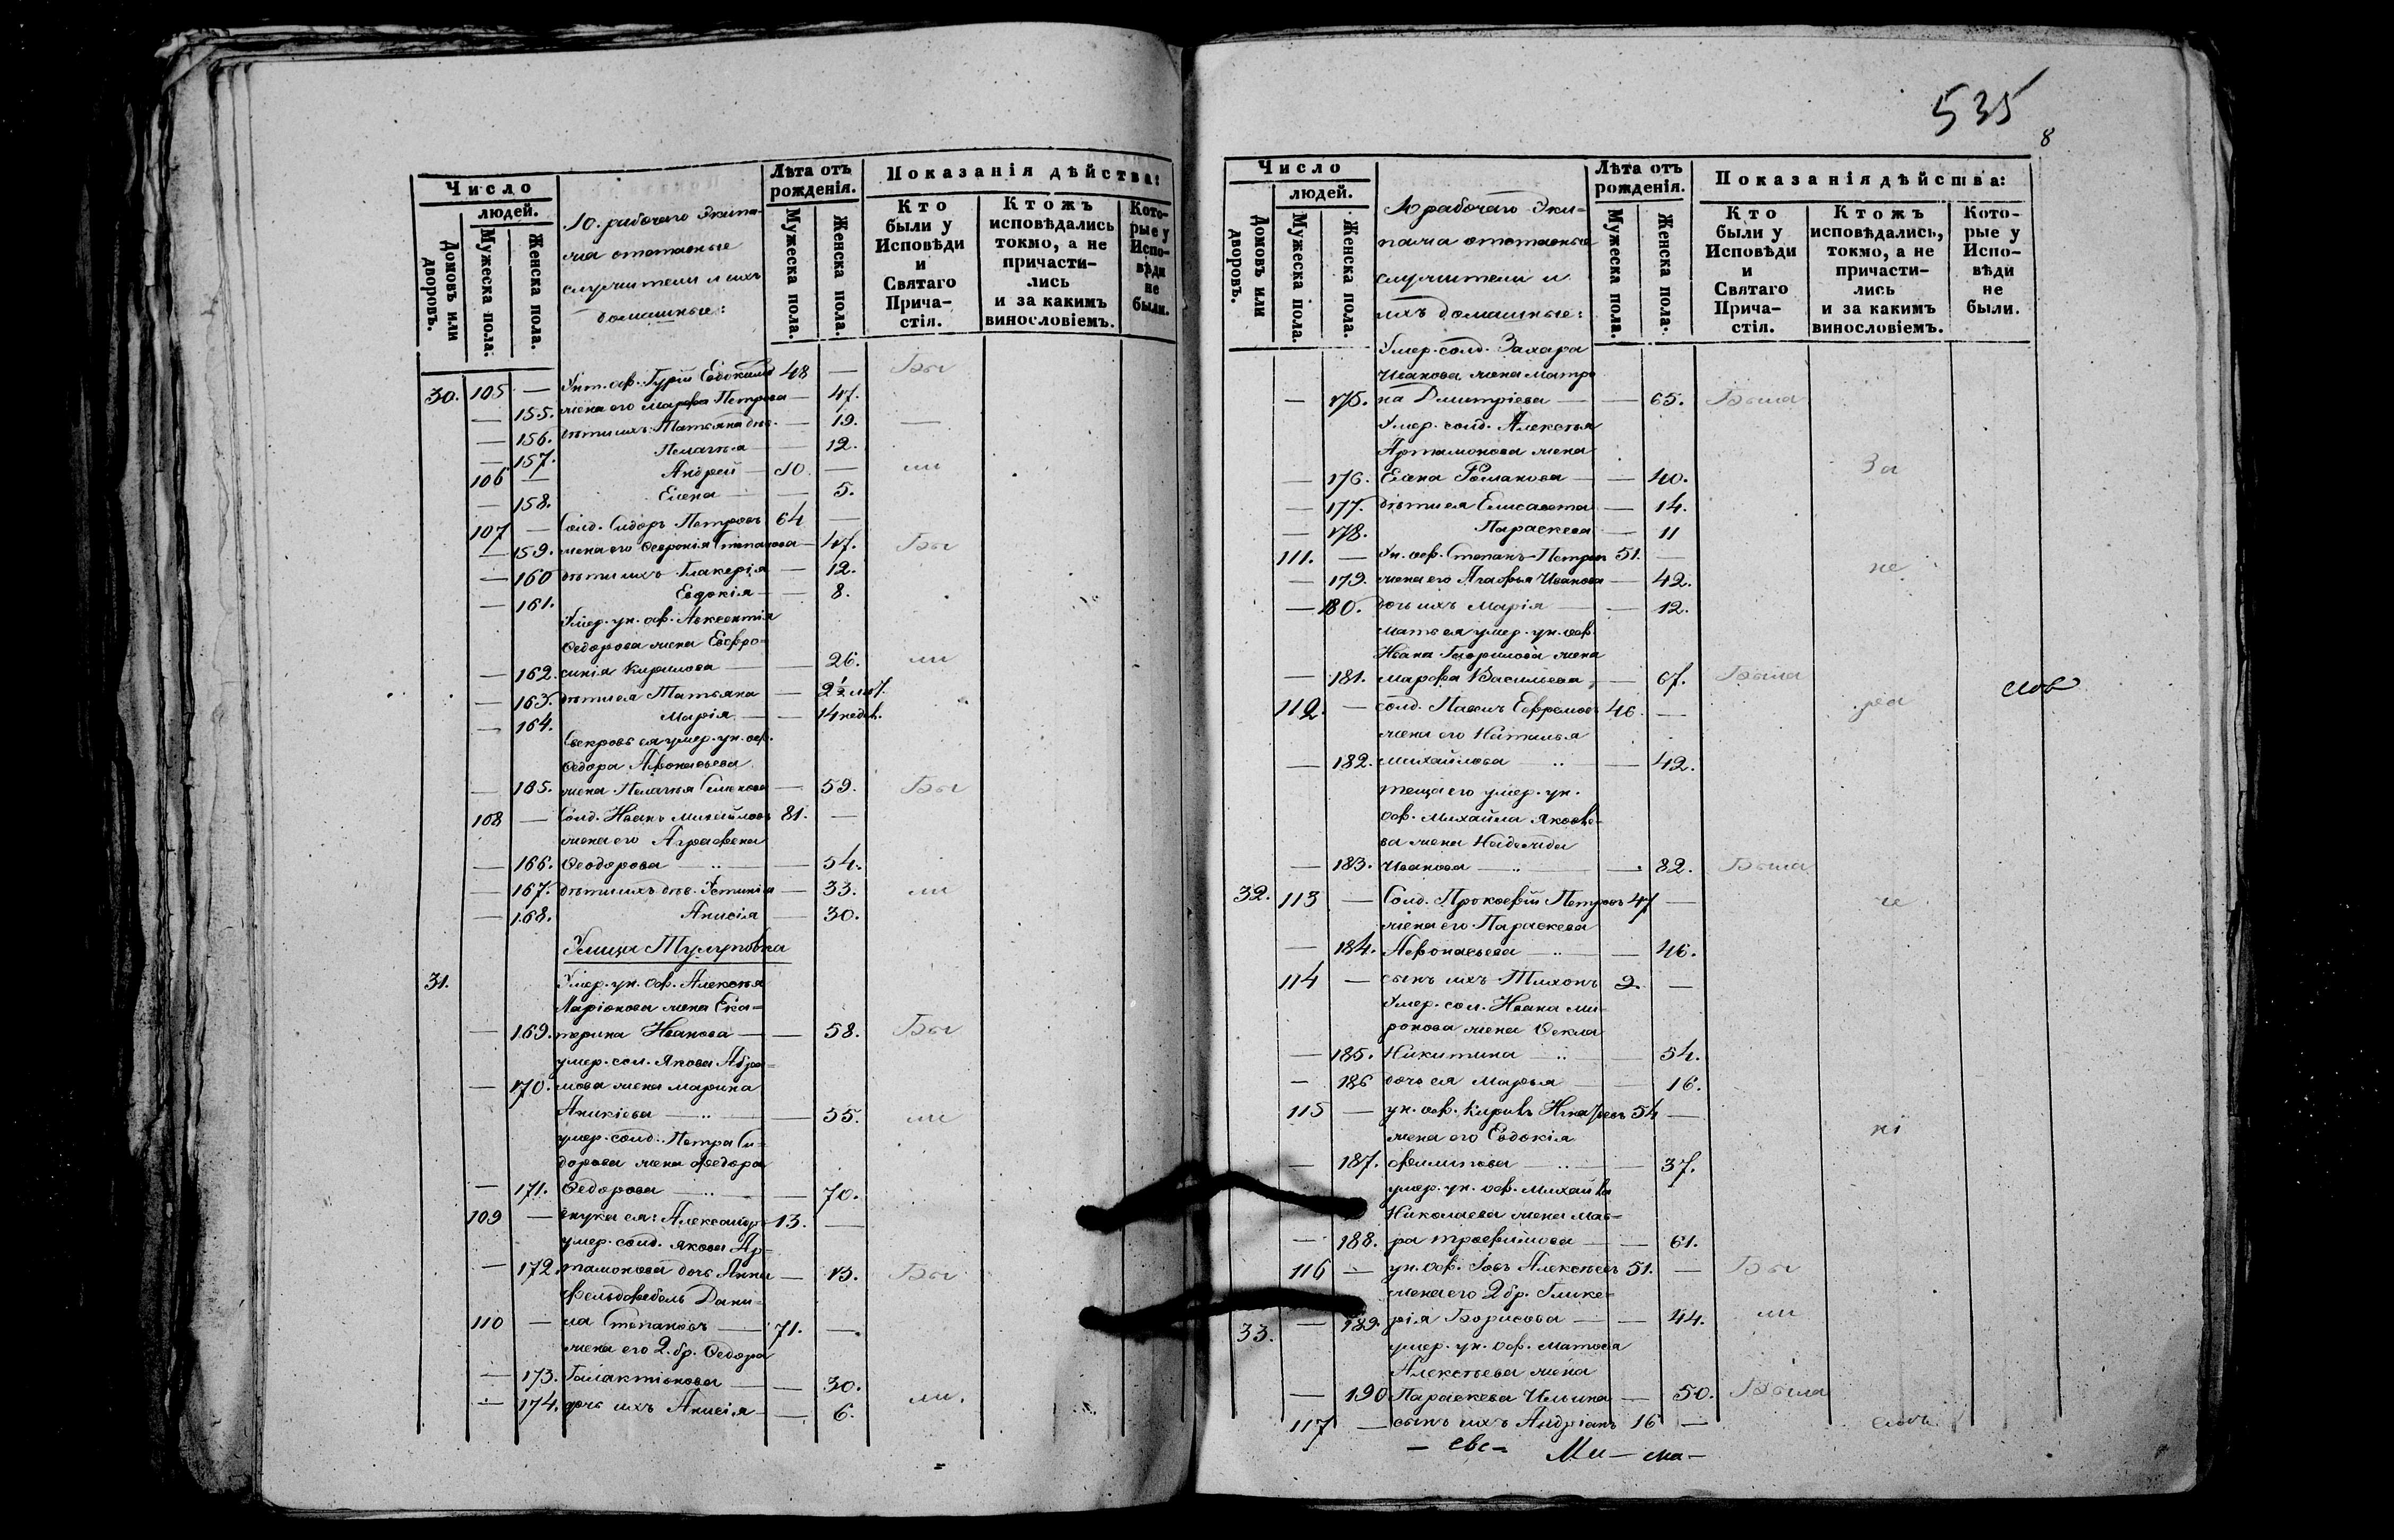 Число
людей.
Домовъ или дворовъ.
Мужеска пола.
Женска пола.
10. рабочаго Экипа-
жа отставные
служители и ихъ
домашные:
Лѣта отъ
рожденія.
Мужеска пола.
Женска пола.
Показанія дѣйства:
Кто
были у
Исповѣди
и
Святаго
Прича-
стія.
Ктожъ
исповѣдались
токмо, а не
причасти-
лись
и за какимъ
винословіемъ.
Кото-
рые у
Испо-
вѣди
не
были.
30. 105 — Унт. оф. Гурій Евдокимовъ 48 — Бы
— 155. жена его Марфа Петрова — 47.
— 156. дѣти ихъ: Татьяна дѣв. — 19. —
— 157. Пелагѣя — 12.
106 — Андрей — 10. — ли
— 158. Елена — 5.
107 — Солд. Сидоръ Петровъ 64 —
— 159. жена его Февронія Степанова — 47. Бы
— 160 дѣти ихъ Гликерія — 12.
— 161. Евдокія — 8.
Умер. ун. оф. Авксентія
Федорова жена Евфро-
— 162. синія Кирилова — 26. ли
— 163. дѣти ея Татьяна — 2½ лѣт.
— 164. Марія — 14 недѣл.
Свекровь ея умер. ун. оф.
Федора Афонасьева
— 165. жена Пелагѣя Семенова — 59. Бы
108 — Солд. Иванъ Михайловъ 81. —
жена его Аграфена
— 166. Феодорова — 54.
— 167. дѣти ихъ дѣв. Устинія — 33. ли
— 168. Анисія — 30.
Улица Тулуповка
31. Умер. ун. оф. Алексѣя
Ларіонова жена Ека-
— 169. терина Иванова — 58. Бы
умер. сол. Якова Абра-
— 170. мова жена Марина
Аникіева — 55. ли
умер. солд. Петра Си-
дорова жена Федора
— 171. Федорова — 70.
109 — внука ея: Александръ 13. —
умер. солд. Якова Ар-
— 172. тамонова дочь Анна — 13. Бы
Фельдфебель Дани-
110 — ла Степановъ — 71. —
жена его 2. бр. Федора
— 173. Галактіонова — 30.
— 174. дочь ихъ Анисія — 6. ли.
535
8
Число
людей.
Домовъ или дворовъ.
Мужеска пола.
Женска пола.
10 рабочаго Эки-
пажа отставные
служители и
ихъ домашные:
Лѣта отъ
рожденія.
Мужеска пола.
Женска пола.
Показанія дѣйства:
Кто
были у
Исповѣди
и
Святаго
Прича-
стія.
Ктожъ
исповѣдались,
токмо, а не
причасти-
лись
и за какимъ
винословіемъ.
Кото-
рые у
Испо-
вѣди
не
были.
Умер. солд. Захара
Иванова жена Матре
— 175. на Дмитріева — 65. Была
Умер. солд. Алексѣя
Артамонова жена
За
— 176. Елена Романова — 40.
— 177. дѣти ея Елисавета — 14.
— 178. Параскева — 11
111. — Ун. оф. Степанъ Петров 51. —
не
— 179. жена его Агафья Иванова — 42.
— 180. дочь ихъ Марія — 12.
мать ея умер. ун. оф.
Ивана Гаврилова жена
— 181. Марфа Васильева — 67. Была
112. — солд. Павелъ Ефремовъ 46. — ра слов
жена его Наталья
— 182. Михайлова — 42.
теща его умер. ун.
оф. Михайла Яковле-
ва жена Надежда
— 183. Иванова — 82. Была
32. 113 — Солд. Прокофій Петровъ 47 — че
жена его Параскева
— 184. Афонасьева — 46.
114 — сынъ ихъ Тихонъ 2. —
Умер. сол. Ивана Ми-
ронова жена Фекла
— 185. Никитина — 54.
— 186 дочь ея Марья — 16.
115 — ун. оф. Кирилъ Игнатьевъ 54 —
жена его Евдокія
ні
— 187. Филипова — 37.
умер. ун. оф. Михайла
Николаева жена Мав-
— 188. ра Трофимова — 61.
116 — ун. оф. Іовъ Алексѣевъ 51. — Бы
жена его 2 бр. Глике-
33. — 189. рія Борисова — 44. ли
умер. ун. оф. Матвея
Алексѣева жена
— 190 Параскева Ильина — 50. Была
117 — сынъ ихъ Андріанъ 16 —